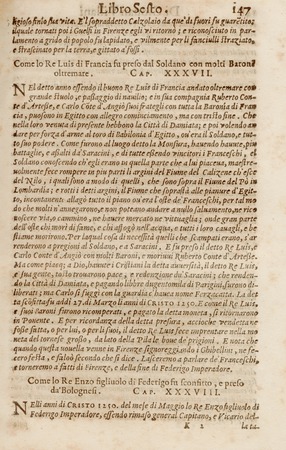 Libro Sesto. 147
ligioso fino sua vita. E'l sopraddetto Calzolaio da que' di fuori fu guarentito;
ilquale tornati poi i Guelfi in Firenze egli vi ritornò; e riconosciuto in par-
lamento a grido di popolo fu lapidato, e vilmente per li fanciulli straziato,
e strascinato per la terra, e gittato a' fossi.
Come lo Re Luis di Francia fu preso dal Soldano con molti Baroni
oltremare. CAP. XXXVII.
NEl detto anno essendo il buono Re Luis di Francia andato oltremare con
grande stuolo, e passaggio di navilio; e in sua compagnia Ruberto Con-
te d'Artese, e Carlo Conte d'Angiò suoi frategli con tutta la Baronia di Fran
cia, puosono in Egitto con allegro cominciamento, ma con tristo fine. Che
nella loro venuta di presente hebbono la Città di Damiata; e poi volendo an-
dare per forza d'arme al toro di Babilonia d'Egitto, ov'era il Soldano con
suo podere. Come furono al luogo detto la Monsura, havendo havute, piu
battaglie, e assalti da Saracini, e di tutte essendo vincitori i Franceschi, el
Soldano conoscendo ch'egli erano in quella parte che a lui piacea,
fece rompere in piu parti gli argini del Fiume del
del Nilo, i quali sono a modo di quelli, che sono sopra il Fiume del Pò in
Lombardia; e rotti i detti argini, il Fiume che soprastà alle pianure d'Egit-
to, incontanente allagò tutto il piano ov'era l'oste de' Franceschi, per tal mo
do che molti n'annegarono, e non poteano andare a nullo salvamento,
via, o cammino, ne havere mercato ne vittuaglia; onde gran parte
dell'oste chi morì di fame, e chi affogò nell'acqua, e tutti i loro cavagli, e be
stiame morirono. Per laqual cosa di necessità quelli che scampati erano, s'ar
renderono a pregioni al Soldano, e a Saracini. E fu preso il detto Re Luis, e
Carlo Conte d'Angiò con molti Baroni, e morìvi Ruberto Conte d'Artese.
Ma come piacque a Dio, havuto i Cristiani la detta aversità, il detto Re Luis,
e sua gente, tosto trovarono pace, e redenzione da Saracini; che renden-
do la Città di Damiata, e pagando libbre dugentomila di Parigini, furono di-
liberati; ma Carlo si fuggì con la guardia c'haveva nome Ferguccatta. La det
ta sconfitta fu a dì 27. di Marzo li anni di CRISTO 1250. E come il Re Luis,
e suoi Baroni furono ricomperati, e pagata la detta moneta, si ritornarono
in Ponente. E per ricordanza della detta presura, acciocche vendetta ne
fosse fatta, o per lui, o per li suoi, il detto Re Luis fece imprentare nella mo
neta del tornese grosso, da lato della Pila le boue de prigioni. E nota che
quando questa novella venne in Firenze signoreggiando i Ghibellini, ne fe-
cero festa, e falò secondo che si dice. Lasceremo a parlare de' Franceschi,
e torneremo a fatti di Firenze, e della fine di Federigo Imperadore.
Come lo Re Enzo figliuolo di Federigo fu sconfitto, e preso
da' Bolognesi. CAP. XXXVIII.
NElli anni di CRISTO 1250. del mese di Maggio lo Re Enzo figliuolo di
Federigo Imperadore, essendo rimaso generale Capitano, e Vicario del-
K 2 la ta-